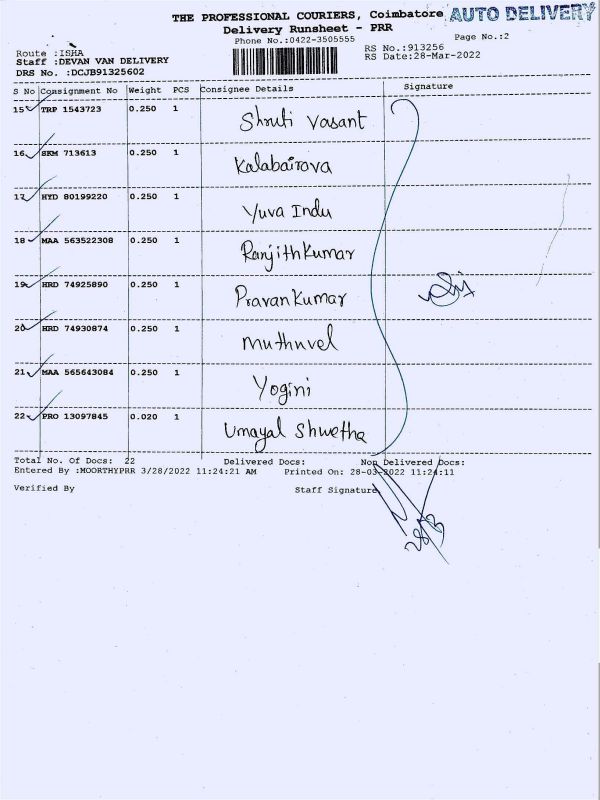 THE PROFESSIONAL COURIERS, Coimbatore AUTO DELIVERY
Delivery Runsheet - PRR
Phone No.:0422-3505555
Page No.:2
Route :ISHA
RS No.:913256
Staff :DEVAN VAN DELIVERY
RS Date:28-Mar-2022
DRS No. :DCJB91325602
S No Consignment No Weight PCS Consignee Details Signature
15 TRP 1543723 0.250 1 Shruti Vasant
16 SKM 713613 0.250 1 Kalabairava
17 HYD 80199220 0.250 1 Yuva Indu
18 MAA 563522308 0.250 1 Ranjithkumar
19 HRD 74925890 0.250 1 Pravankumar
20 HRD 74930874 0.250 1 Muthuvel
21 MAA 565643084 0.250 1 Yogini
22 PRO 13097845 0.020 1 Umayal Shwetha
Total No. Of Docs: 22 Delivered Docs: Non Delivered Docs:
Entered By :MOORTHYPRR 3/28/2022 11:24:21 AM Printed On: 28-03-2022 11:24:11
Verified By Staff Signature
28/3